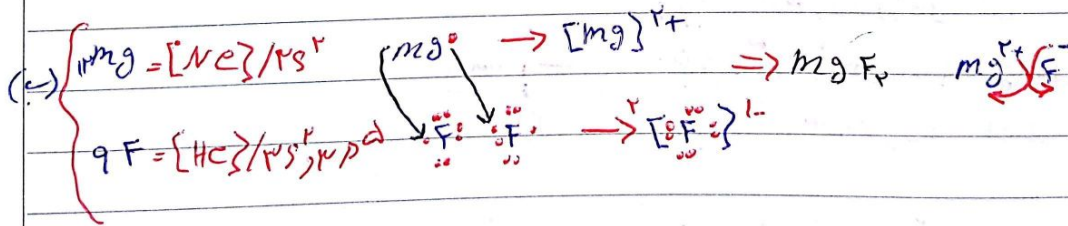 (ب) ₁₂mg = [Ne]/۳s² mg: → [mg]²⁺ ⇒ mgF₂ mg²⁺ F⁻
₉F = [He]/۲s², ۲p⁵ F F → ۲[F]¹⁻